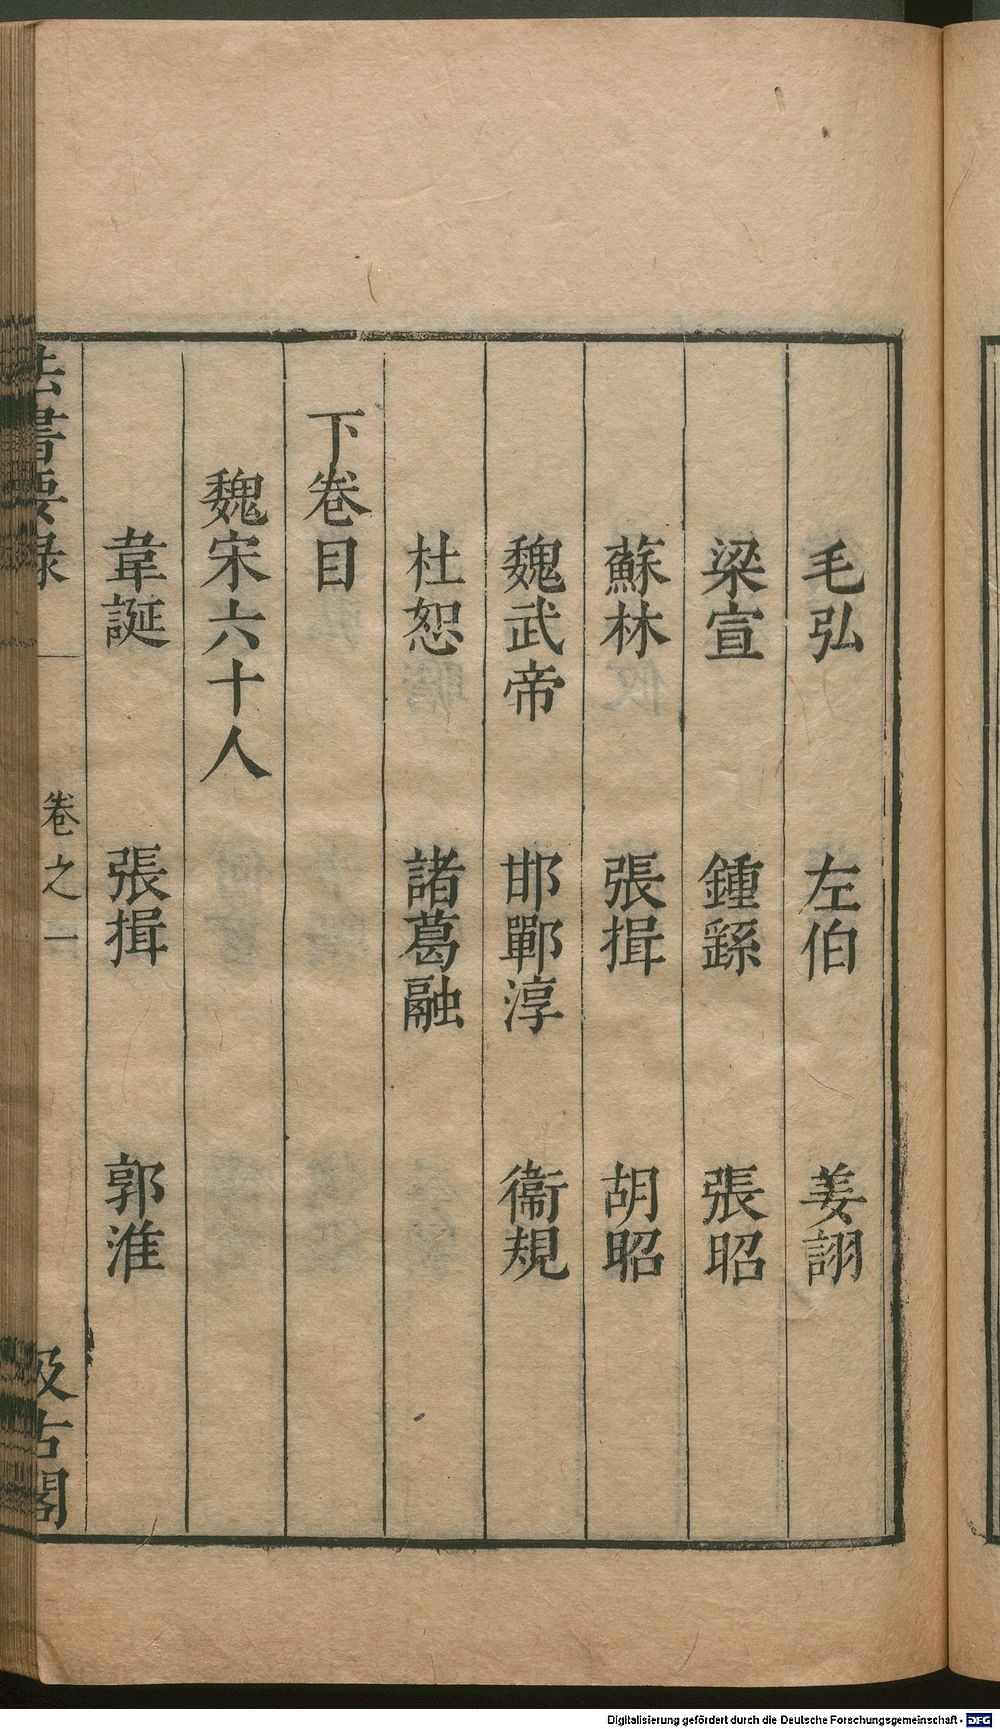 毛弘 左伯 姜詡
梁宣 鍾繇 張昭
蘇林 張揖 胡昭
魏武帝 邯鄲淳 衞規
杜恕 諸葛融
下卷目
魏宋六十人
韋誕 張揖 郭淮
法書要錄 卷之一 汲古閣
Digitalisierung gefördert durch die Deutsche Forschungsgemeinschaft - DFG